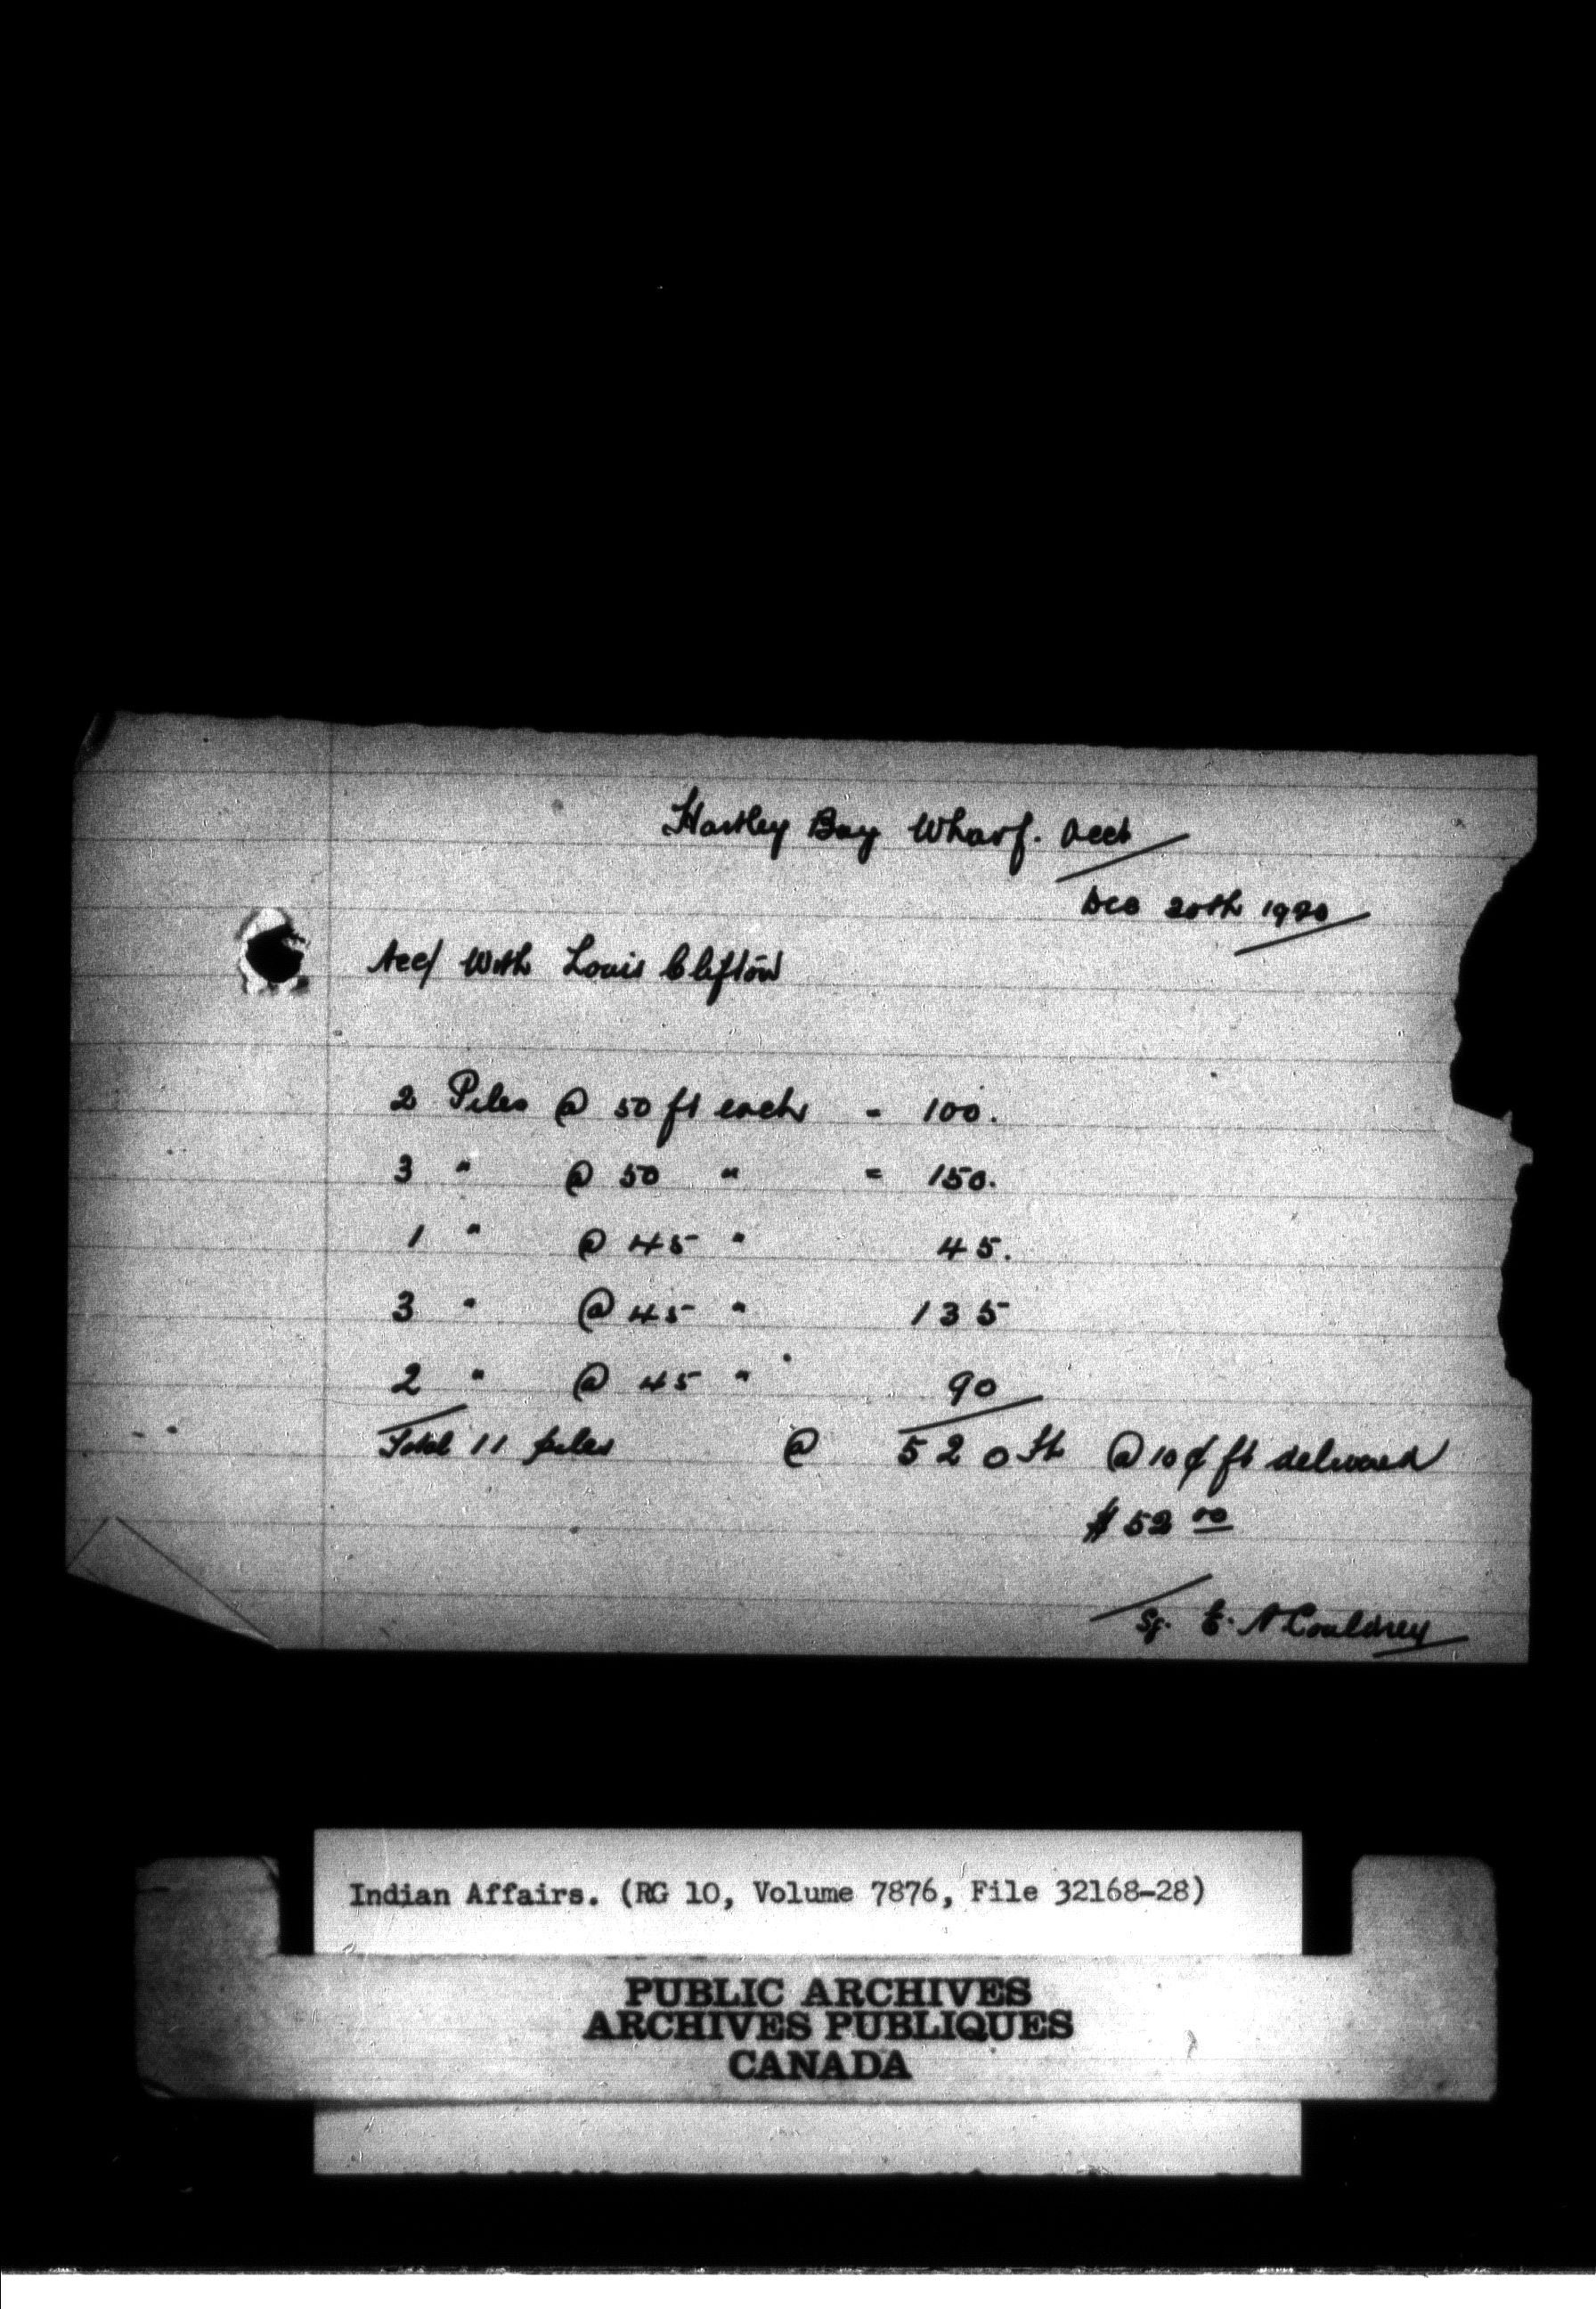 Hartley Bay Wharf. Acct
Dec 20th 1920
Acc/ With Louis Clifton
2 Piles @ 50 ft each = 100.
3 " @ 50 " = 150.
1 " @ 45 " 45.
3 " @ 45 " 135
2 " @ 45 " 90
Total 11 piles @ 520 ft @ 10 ¢ ft delivered
$ 52 00
Sg. E. A Couldrey
Indian Affairs. (RG 10, Volume 7876, File 32168-28)
PUBLIC ARCHIVES
ARCHIVES PUBLIQUES
CANADA